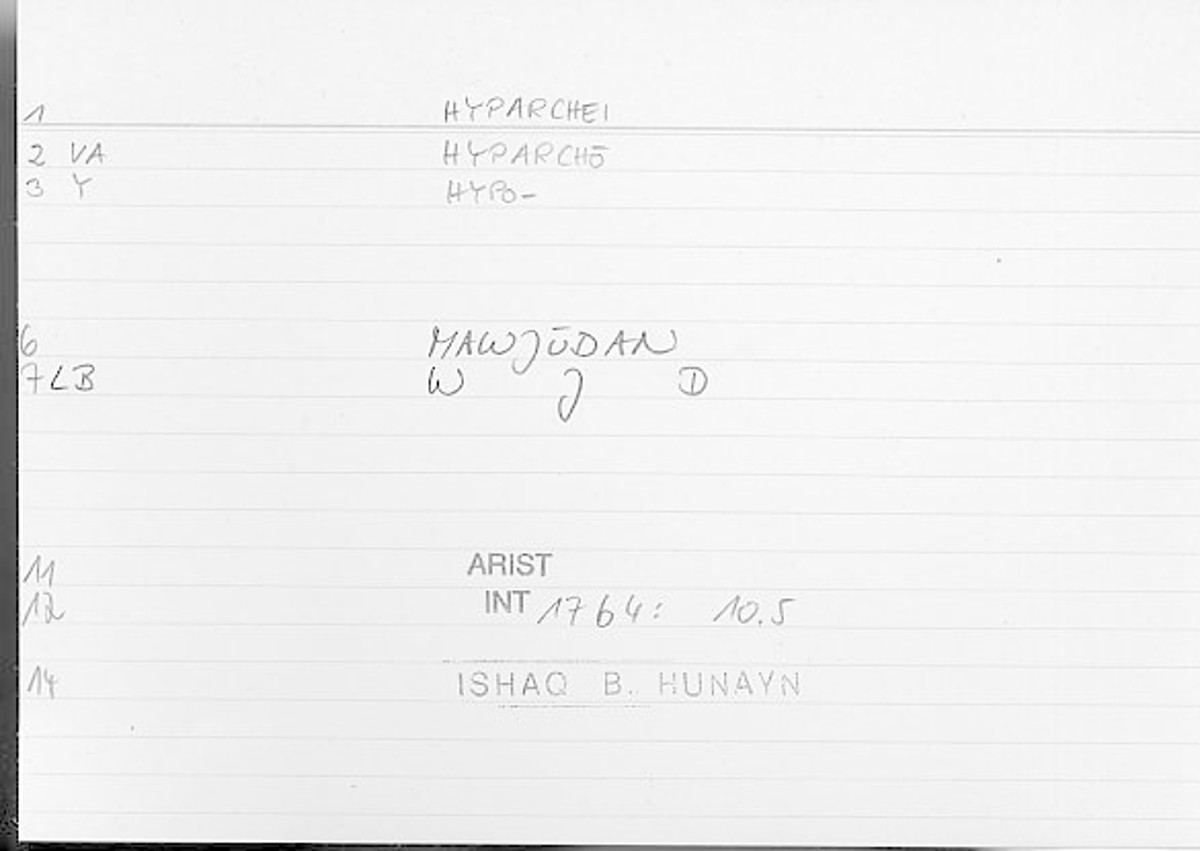 1 HYPARCHEI
2 VA HYPARCHŌ
3 Y HYPO-
6 MAWJŪDAN
7 LB W J D
11 ARIST
12 INT 1764: 10.5
14 ISHAQ B. HUNAYN